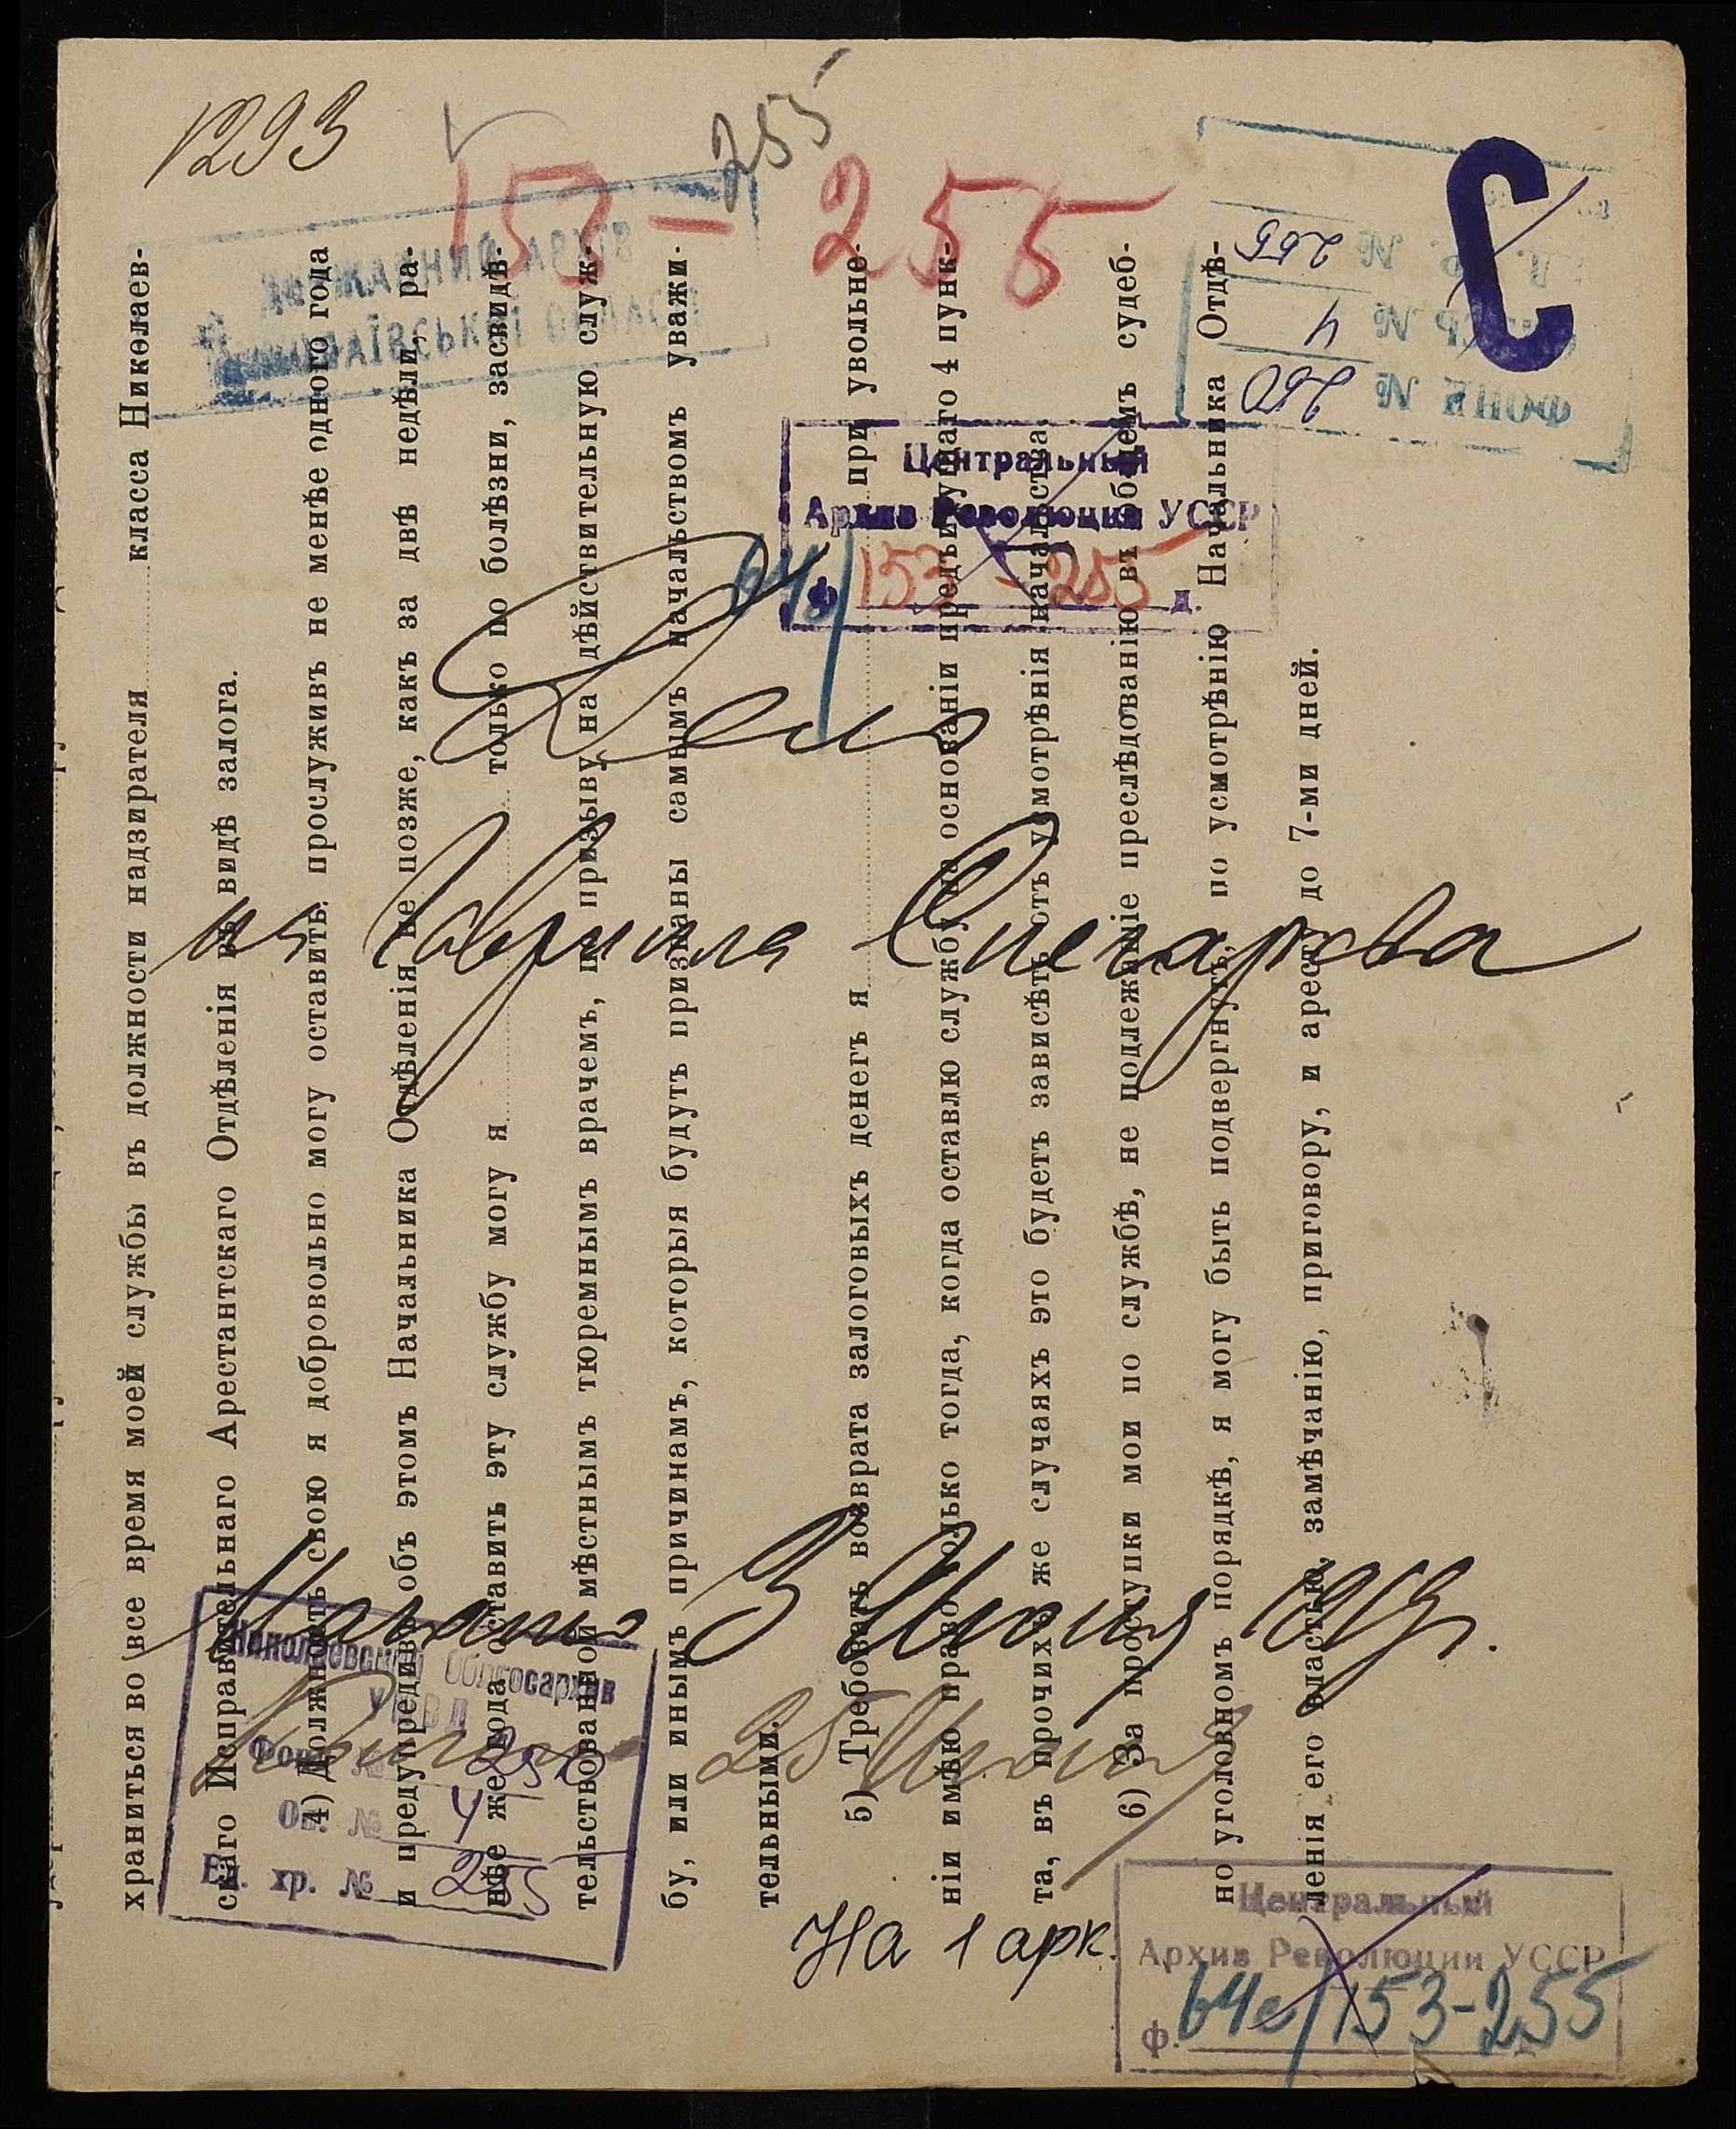 1293
255
153-255
ДЕРЖАВНИЙ АРХІВ
МИКОЛАЇВСЬКОЇ ОБЛАСТІ
С
ФОНД № 250
№ 4
№ 255
Центральный
Архив Революции УССР
ф. 153-255 д.
Дело
Гаврила
Начато 3 Июня 1913 г.
25 Июня
Николаевский Облгосархив
УМВД
Фонд № 250
Оп. № 4
Ед. хр. № 255
На 1 арк.
Центральный
Архив Революции УССР
ф. 64с/153-255
храниться во все время моей службы въ должности надзирателя класса Николаев-
скаго Исправительнаго Арестантскаго Отдѣленія въ видѣ залога.
4) Должность свою я добровольно могу оставить, прослуживъ не менѣе одного года
и предупредивъ объ этомъ Начальника Отдѣленія не позже, какъ за двѣ недѣли, ра-
нѣе же года оставить эту службу могу я только по болѣзни, засвидѣ-
тельствованной мѣстнымъ тюремнымъ врачемъ, по призыву на дѣйствительную служ-
бу, или инымъ причинамъ, которыя будутъ признаны самымъ начальствомъ уважи-
тельными.
5) Требовать возврата залоговыхъ денегъ я при увольне-
ніи имѣю право только тогда, когда оставлю службу на основаніи предъидущаго 4 пунк-
та, въ прочихъ же случаяхъ это будетъ зависѣть отъ усмотрѣнія начальства.
6) За проступки мои по службѣ, не подлежащіе преслѣдованію въ общемъ судеб-
но уголовномъ порядкѣ, я могу быть подвергнутъ, по усмотрѣнію Начальника Отдѣ-
ленія его властью, замѣчанію, приговору, и аресту до 7-ми дней.